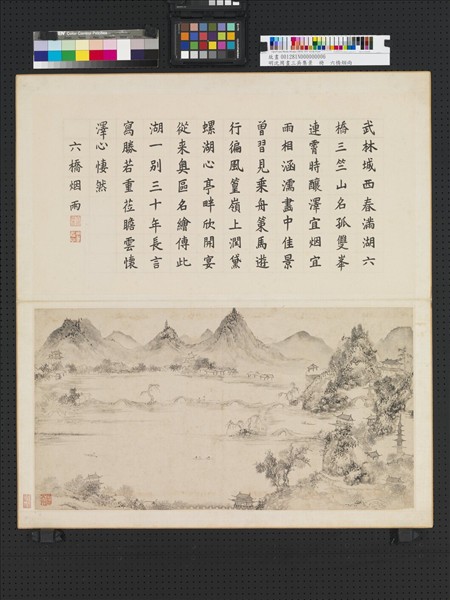 武林城西春滿湖六
橋三竺山名孤雙峯
連霄時釀澤宜烟宜
雨相涵濡畫中佳景
曾習見乘舟策馬遊
行徧風篁嶺上潤黛
螺湖心亭畔欣開宴
從来奥區名繪傳此
湖一別三十年長言
寫勝若重莅瞻雲懷
澤心悽然
六橋烟雨
六橋烟雨